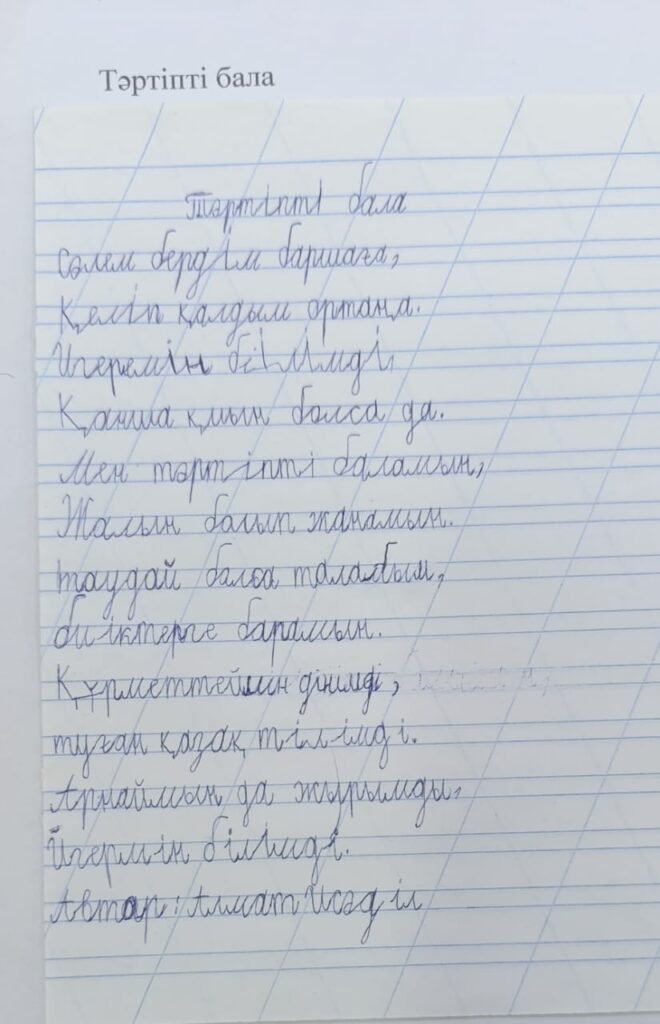 Тәртіпті бала
Тәртіпті бала
Сәлем бердім баршаға,
Қеліп қалдым ортаңа.
Игеремін білімді,
Қанша қиын болса да.
Мен тәртіпті баламын,
Жалын болып жанамын.
таудай болса талабым,
биіктерге барамын.
Құрметтеймін дінімді,
туған қазақ тілімді.
Арнаймын да жырымды,
Игермін білімді.
Автор: Алмат Исәділ